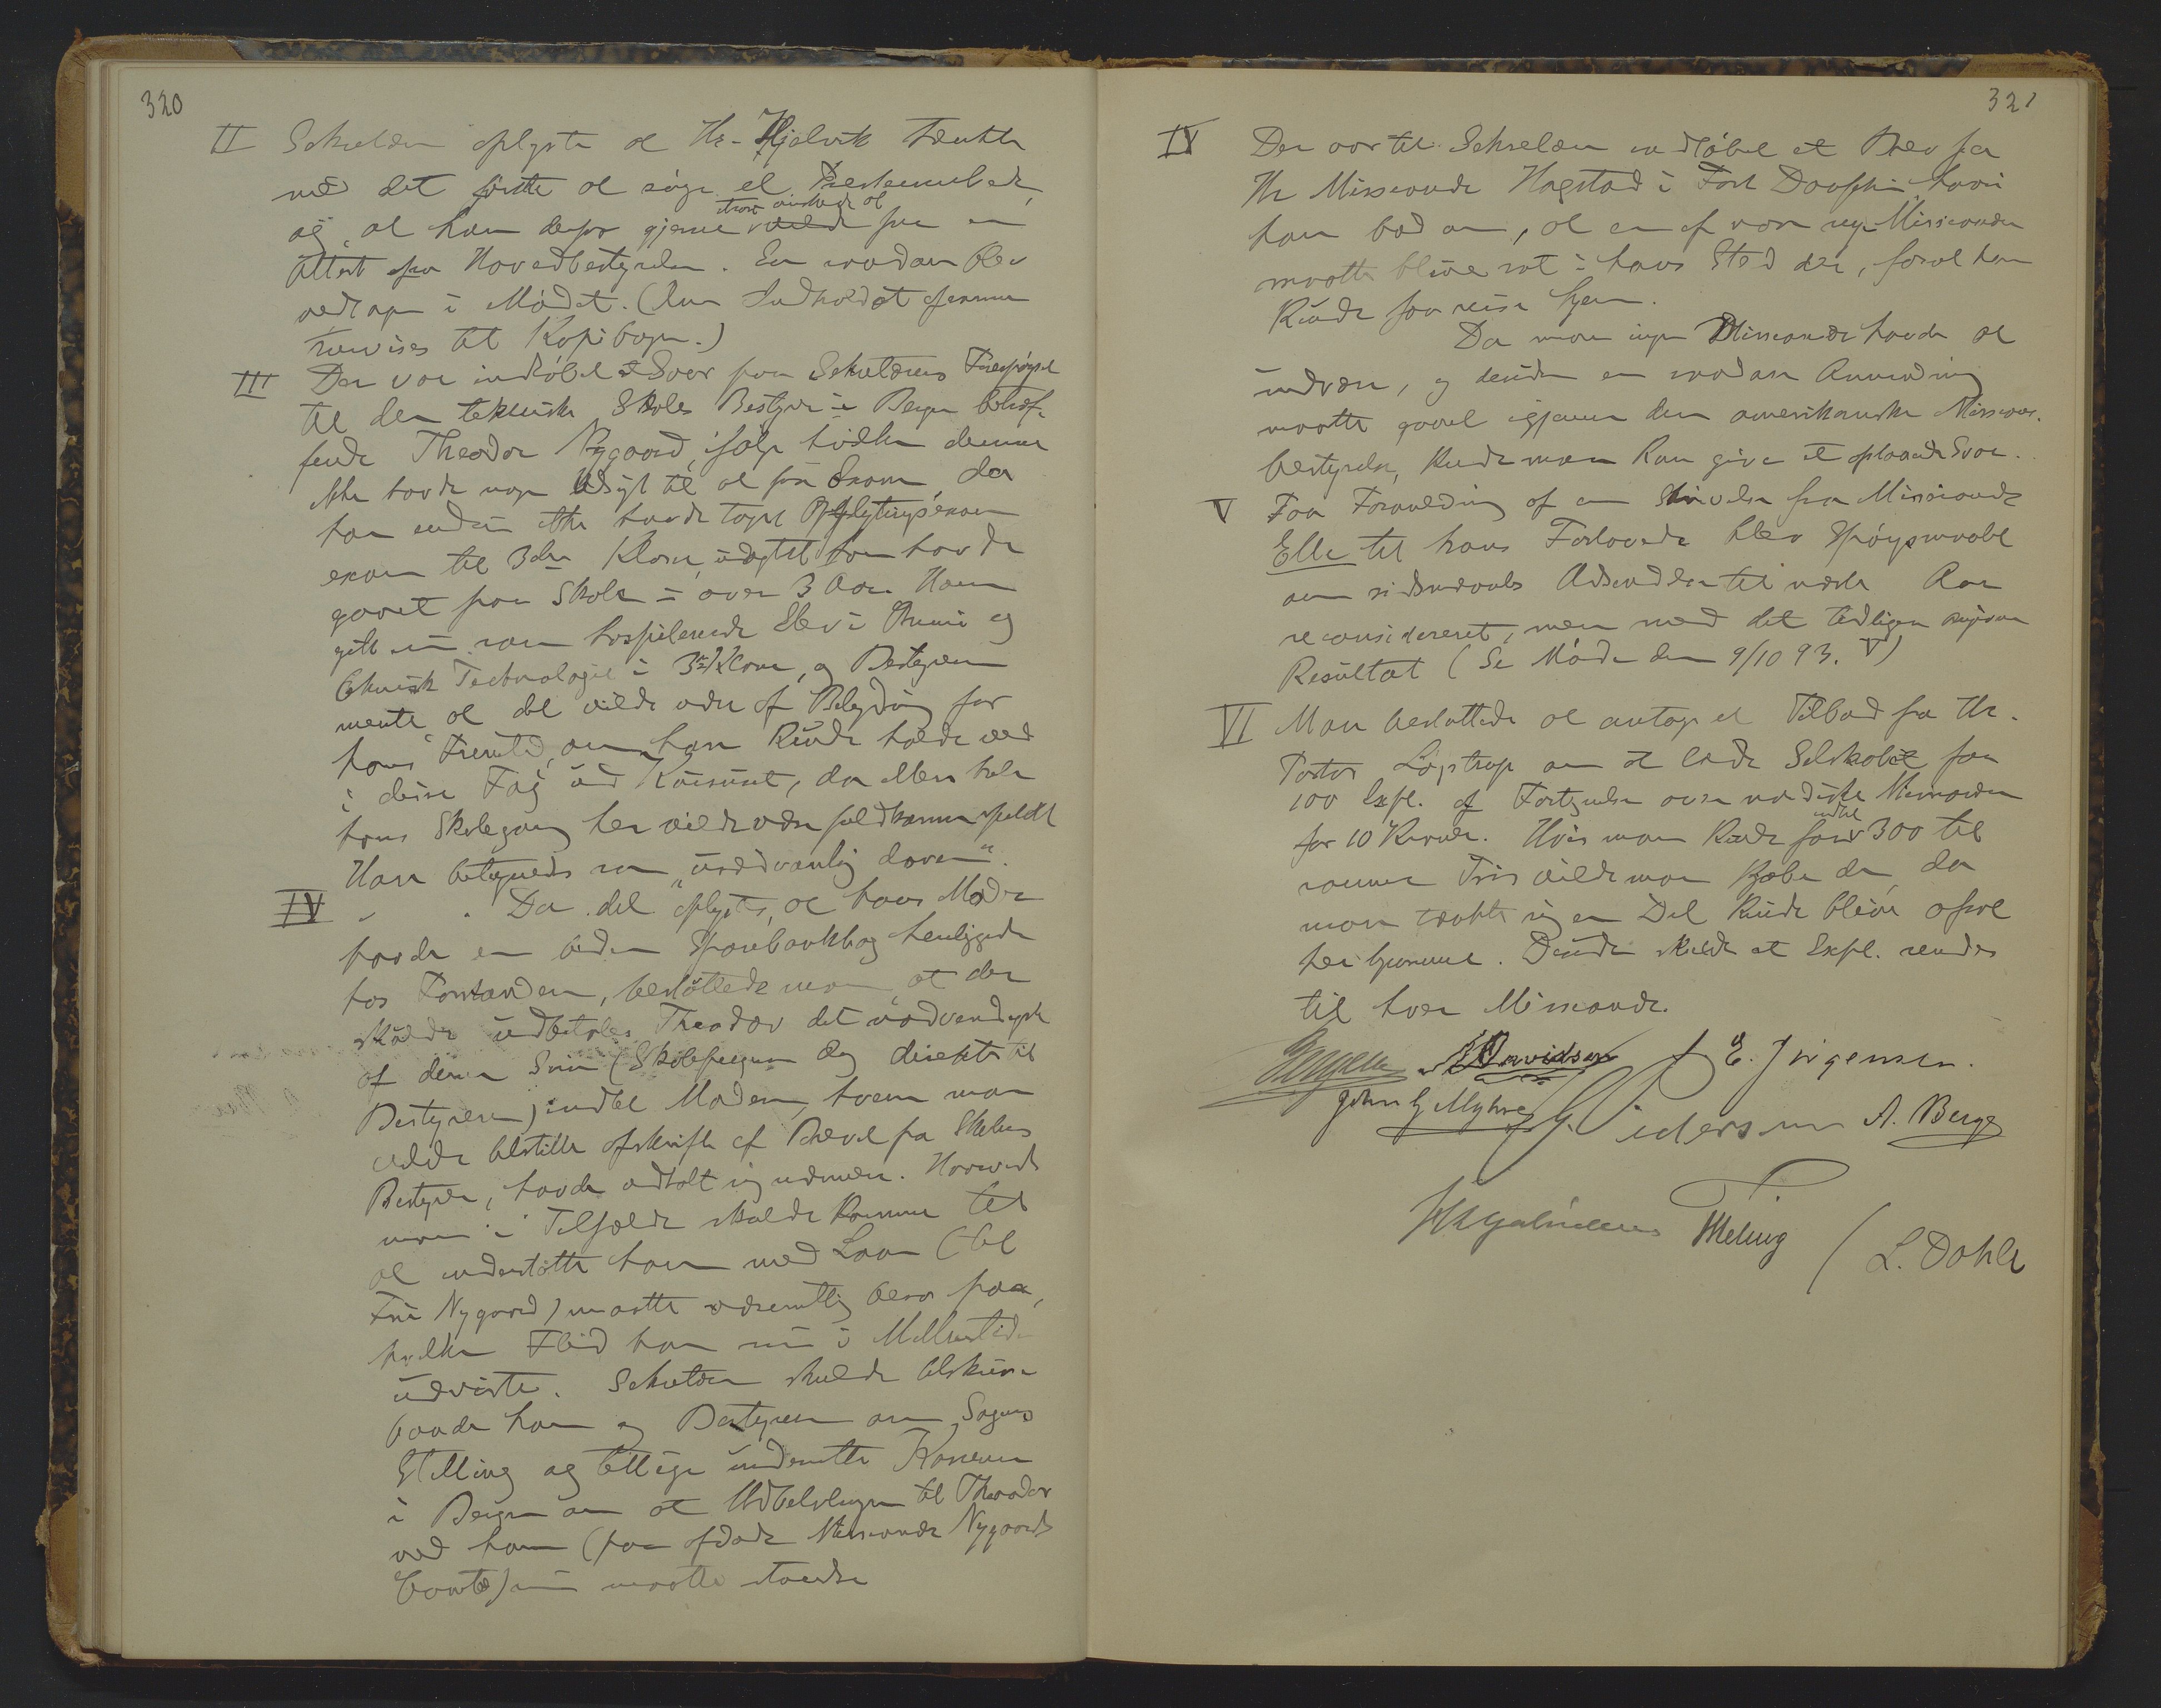 320
II Sekretæren oplyste at Hr. Hjelvik tænkte
med det første at søge et Presteembede,
og at han derfor gjerne vilde
strax ønskede at
faa en
Attest fra Hovedbestyrelsen. En saadan blev
vedtagen i Mødet. (Om Indholdet af samme
henvises til Kopibogen.)
III Der var indløbet et Svar paa Sekretærens Forespørgsel
til den tekniske Skoles Bestyrer i Bergen betræf-
fende Theodor Nygaard, ifølge hvilken denne
ikke havde nogen Udsigt til at faa Exam, da
han endnu ikke havde taget Opflytningsexam
exam til 3die Klasse, uagtet han havde
gaaet paa Skole i over 3 Aar. Han
gik nu som hospiterende Elev i Kemi og
teknisk Technologie i 3die Klasse, og Bestyreren
mente at det vilde være af Betydning for
hans Fremtid, om han kunde holde ved
i disse Fag ud Kurset, da ellers hele
hans Skolegang her vilde være fuldkommen spildt
Han betegnedes som "usædvanlig doven".
IV Da det oplystes, at hans Moder
havde en liden Sparebankbog henliggende
hos Forstanderen, besluttede man, at der
skulde udbetales Theodor det nødvendigste
af denne Sum (Skolepengene dog direkte til
Bestyreren) indtil Moderen, hvem man
vilde tilstille afskrift af Brevet fra Skolens
Bestyrer, havde udtalt sig nærmere. Hvorvidt
man i Tilfælde skulde komme til
at understøtte ham med Laan (til
Fru Nygaard) maatte væsentlig bero paa,
hvilken Flid han nu i Mellemtiden
udviste. Sekretæren skulde tilskrive
baade ham og Bestyreren om Sagens
Stilling og tillige underrette Kassereren
i Bergen om at Udbetalingen til Theodor
ved ham (paa afdøde Missionær Nygaards
Conto) nu maatte standse
321
IV Der var til Sekretæren indløbet et Brev fra
Hr Missionær Hogstad i Fort Dauphin, hvori
han bad om, at en af vore nye Missionærer
maatte blive sat i hans Sted der, forat han
kunde faa reise hjem.
Da man ingen Missionær havde at
undvære, og desuden en saadan Anmodning
maatte gaael igjennem den amerikanske Missions-
bestyrelse, kunde man kun give et afslaaende Svar.
V Paa Foranledning af en Skrivelse fra Missionær
Elle til hans Forlovede blev Spørgsmaalet
om sidstnævntes Udsendelse til næste Aar
reconsidereret, men med det tidligere
Resultat (Se Møde den 9/10 93. V)
VI Man besluttede at antage et Tilbud fra Hr.
Pastor Løgstrup om at lade Selskabet faa
100 Expl. af Fortegnelse over nordiske Missionærer
for 10 Kroner. Hvis man kunde faa
indtil
300 til
samme Pris vilde man kjøbe dem, da
man tænkte sig en Del kunde blive afsat
her hjemme. Desuden skulde et Expl. sendes
til hver Missionær.
Davidsen J E. Jørgensen.
John G Myhre A. Berge
Meling L. Dahle